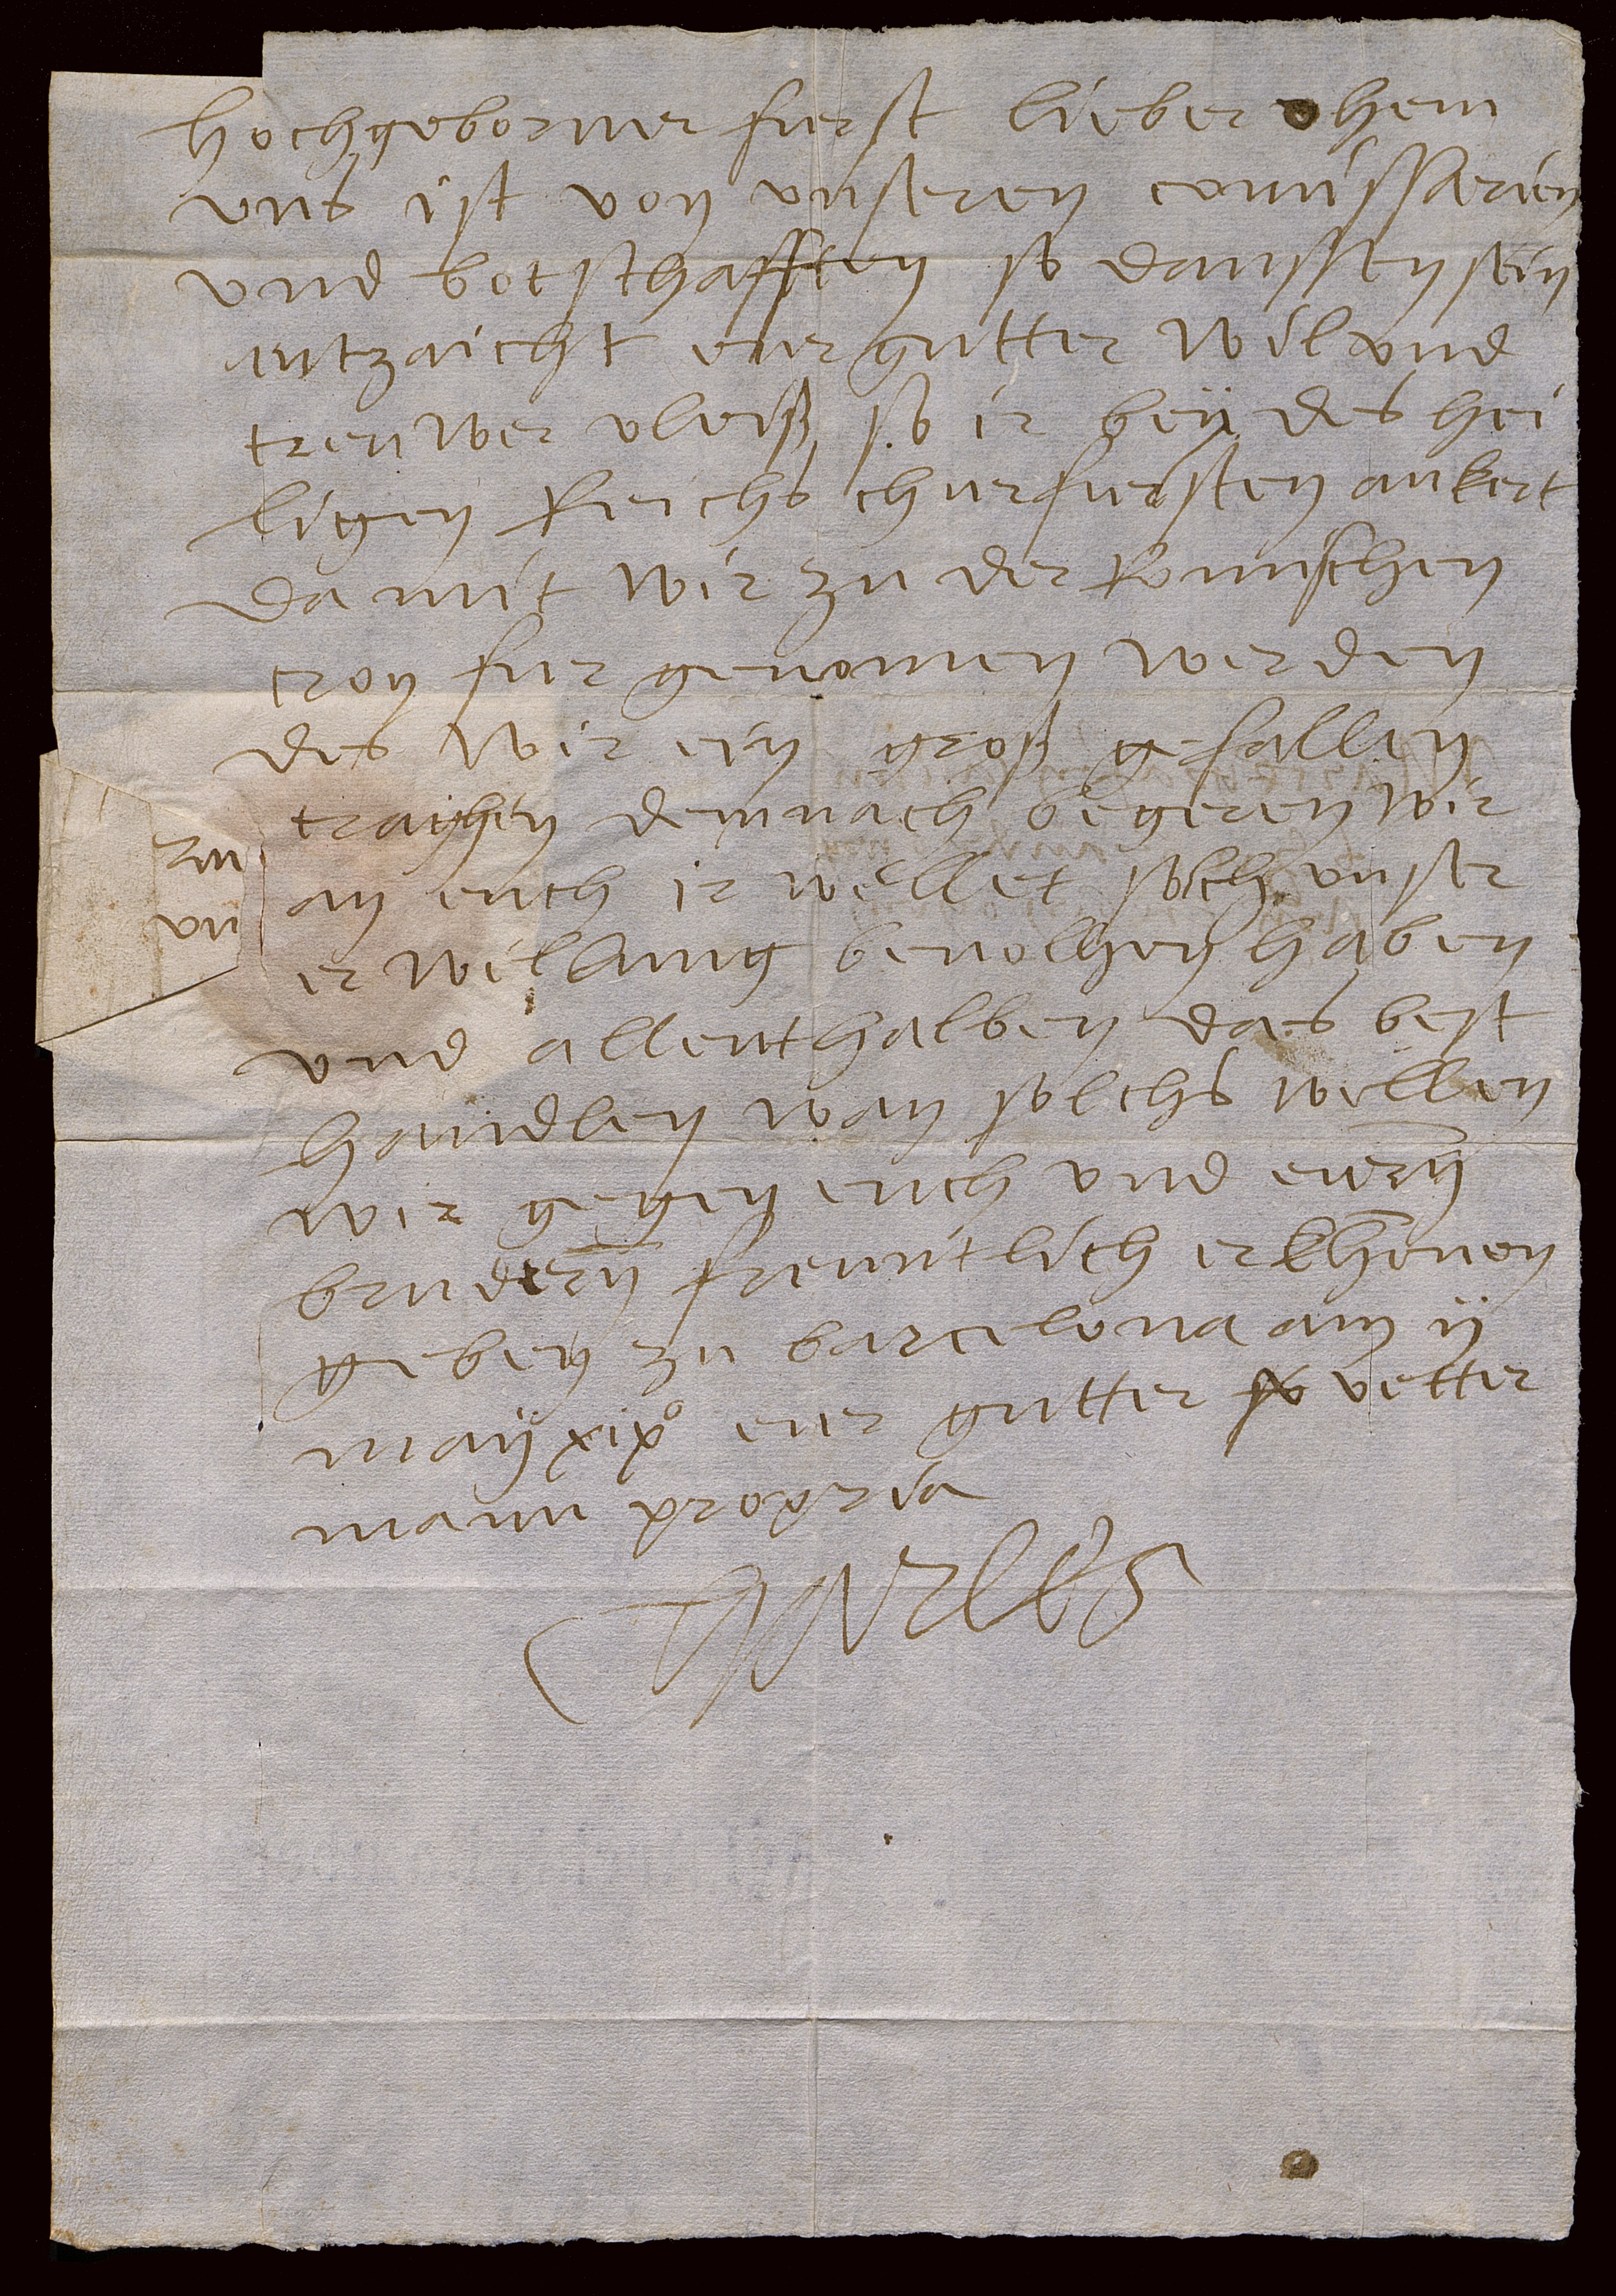 hochgeborner furst lieber ohem
vns ist von vnseren comissarien
vnd botsthafften so daussen sein
antzaicht eur gutter wil vnd
treuwer vleiß so ir beÿ des hei
ligen Reichs churfursten ankert
damit wir zu der Romischen
cron fur genomen werden
des wir ein groß gefallen
traghen demnach begeren wir
an euch ir wellet solch vnser
er wellung beuolhen haben
vnd allenthalben das best
handlen wan solchs wellen
wir gegen euch vnd ewern
brudern freuntlich erkhenen
geben zu barcelona am ii
maÿ xix° eur gutter vetter
manu propria
Charles